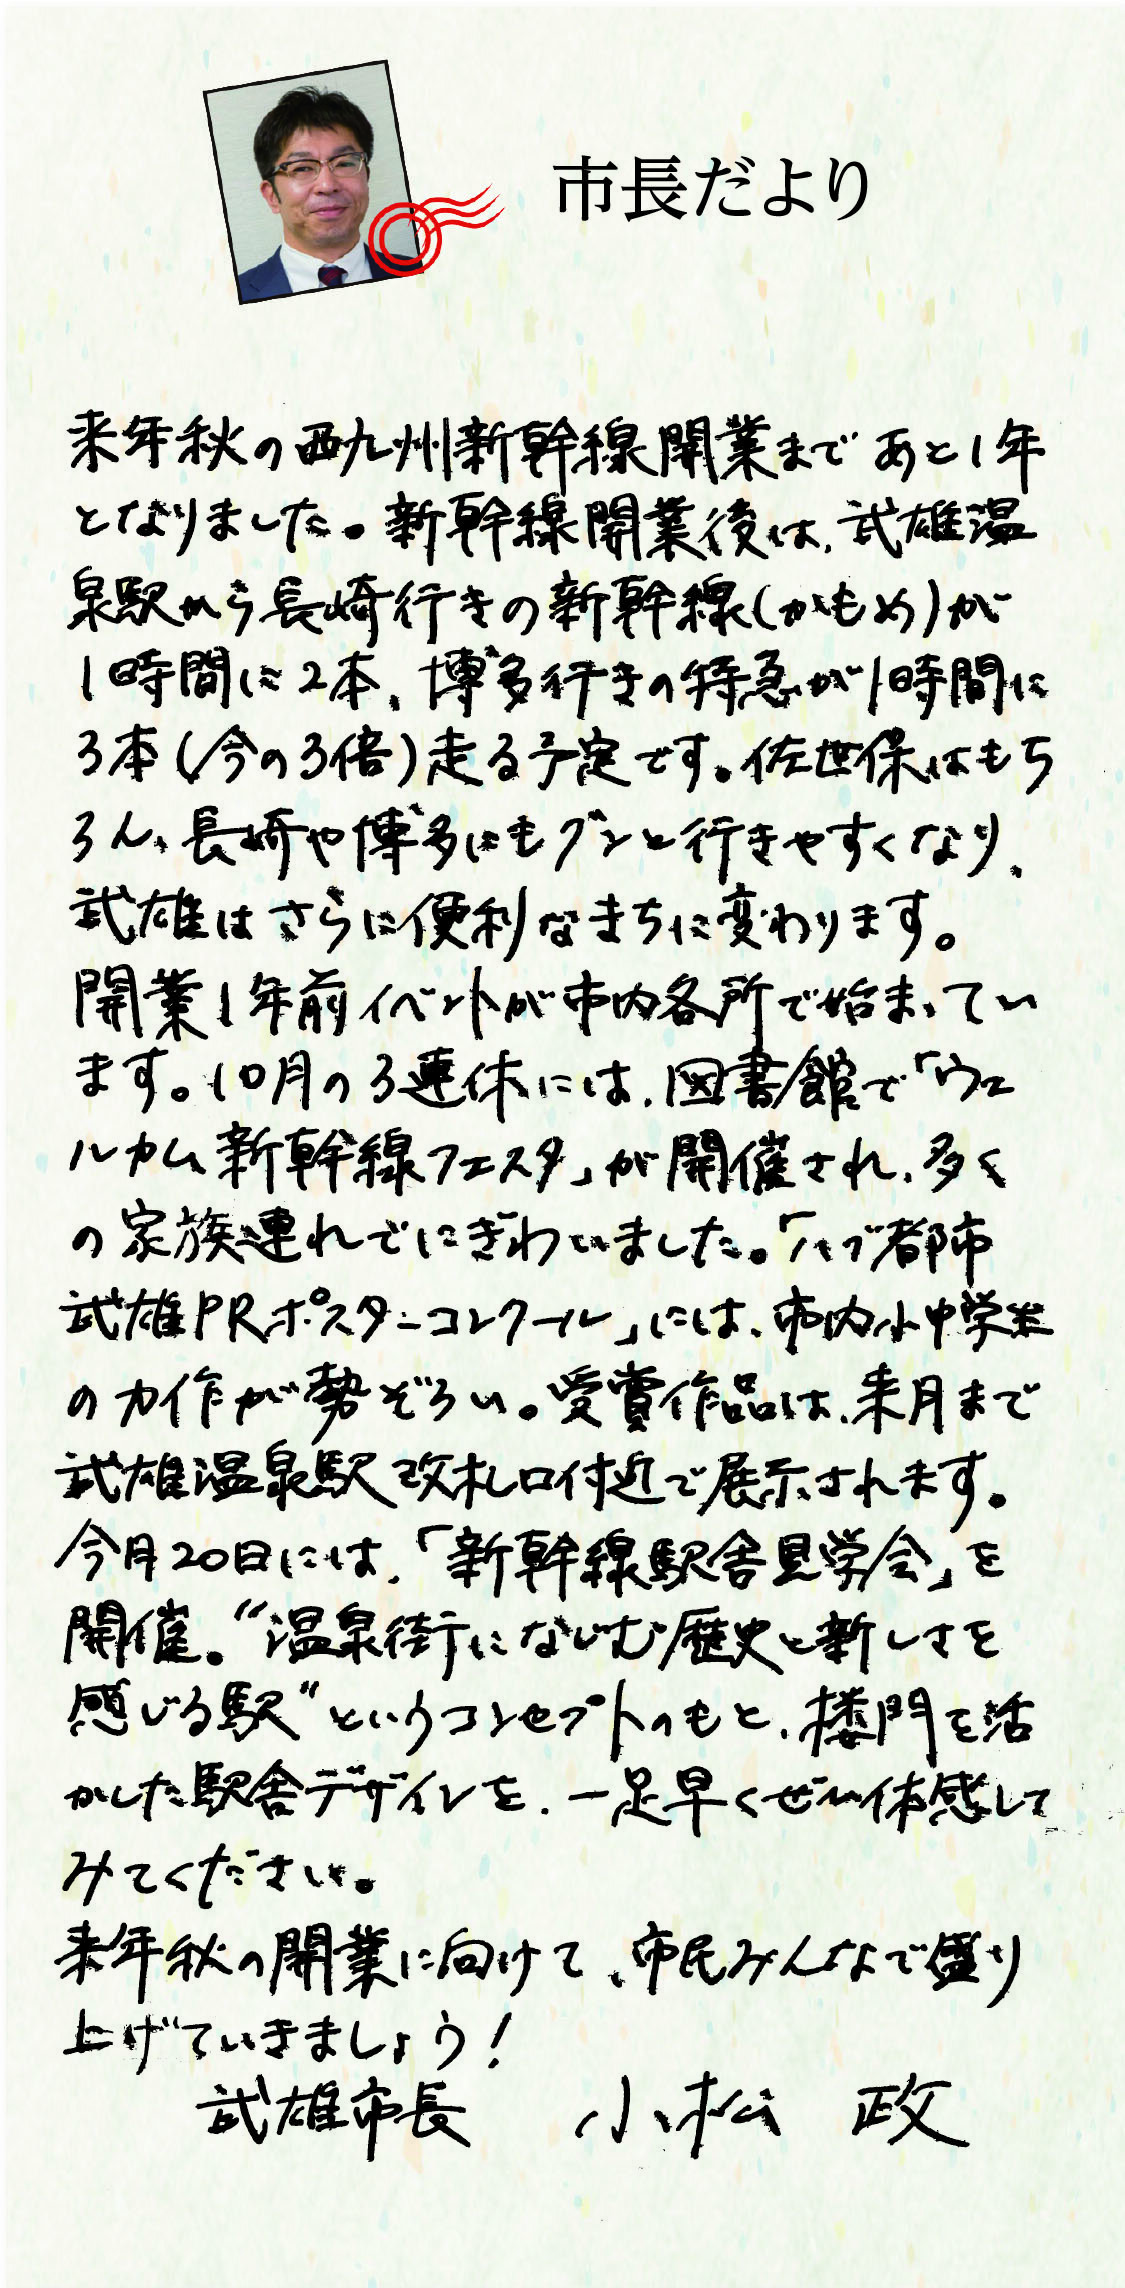 市長だより
来年秋の西九州新幹線開業まであと1年
となりました。新幹線開業後は、武雄温
泉駅から長崎行きの新幹線(かもめ)が
1時間に2本、博多行きの特急が1時間に
3本(今の3倍)走る予定です。佐世保はもち
ろん、長崎や博多にもグンと行きやすくなり、
武雄はさらに便利なまちに変わります。
開業1年前イベントが市内各所で始まってい
ます。10月の3連休には、図書館で「ウェ
ルカム新幹線フェスタ」が開催され、多く
の家族連れでにぎわいました。「ハブ都市
武雄PRポスターコンクール」には、市内小中学生
の力作が勢ぞろい。受賞作品は、来月まで
武雄温泉駅改札口付近で展示されます。
今月20日には、「新幹線駅舎見学会」を
開催。“温泉街になじむ歴史と新しさを
感じる駅”というコンセプトのもと、楼門を活
かした駅舎デザインを、一足早くぜひ体感して
みてください。
来年秋の開業に向けて、市民みんなで盛り
上げていきましょう!
武雄市長 小松 政